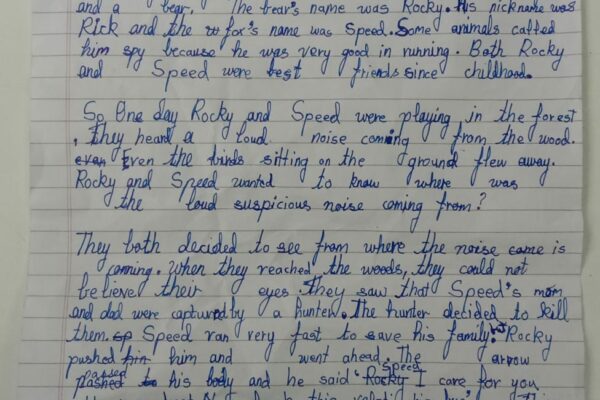 and a bear. The bear's name was Rocky. His nickname was
Rick and the fox's name was Speed. Some animals called
him spy because he was very good in running. Both Rocky
and Speed were best friends since childhood.
So One day Rocky and Speed were playing in the forest
, They heard a loud noise coming from the wood.
even Even the birds sitting on the ground flew away.
Rocky and Speed wanted to know where was
the loud suspicious noise coming from?
They both decided to see from where the noise come is
coming. When they reached the woods, they could not
believe their eyes. They saw that Speed's mom
and dad were captured by a hunter. The hunter decided to kill
them. so Speed ran very fast to save his family. Rocky
pushed him him and went ahead. The arrow
passed speed
pashed to his body and he said "Rocky I care for you